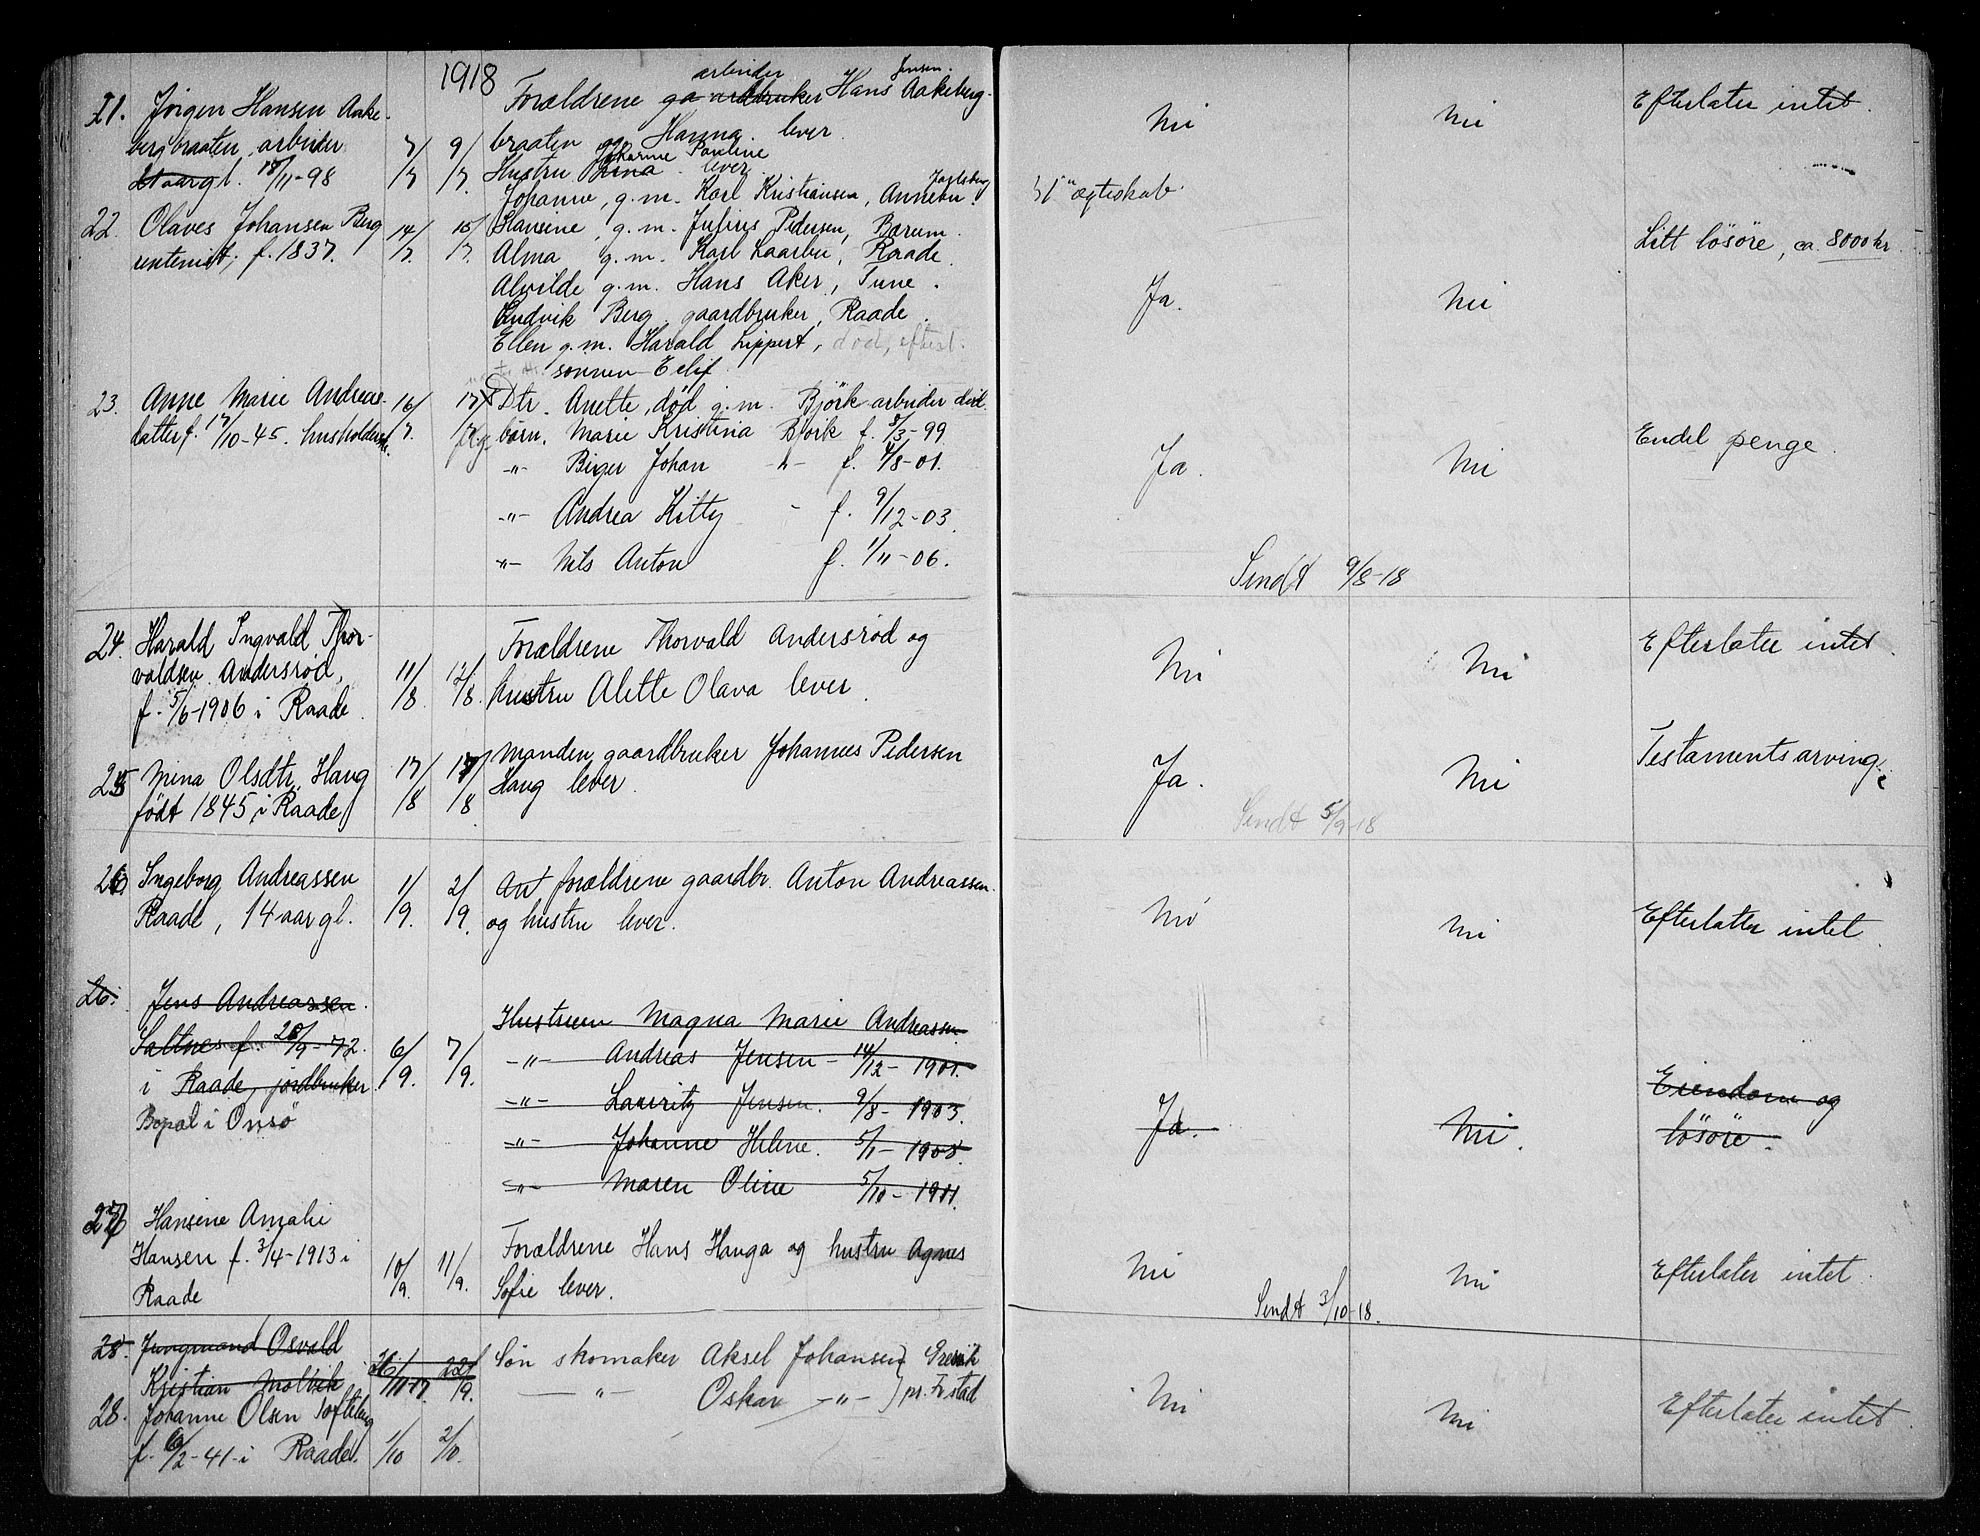 1918
21. Jörgen Hansen Aake-
bergbraaten, arbeider 7/7 9/7
21 aar gl. 18/11-98
arbeider Jensen
Forældrene gaardbruker Hans Aakeberg-
braaten og Hanna lever.
Johanne Pauline
Hustru Lina lever.
Nei Nei Efterlater intet.
22. Olaves Johansen Berg 14/7. 15/7.
rentenist, f. 1837.
Jarlsberg
Johanne, g.m. Karl Kristiansen, Annebu
Hansine, g.m. Julius Pedersen, Bærum.
Alma g.m. Karl Laarbu, Raade.
Alvilde g.m. Hans Aker, Tune.
Ludvik Berg gaardbruker, Raade.
Ellen g.m. Harald Lippert, død, efterl.
sønnen Eelif
ægteskab.
Ja. Nei Litt lösöre, ca. 8000 kr.
23. Anne Marie Andreas- 16/7. 17/7
datter f. 17/10-45. husholderske.
Dtr. Anette, død g.m. Björk arbeider död.
børn. Marie Kristina Björk f. 8/3-99
-"- Biger Johan -"- f. 4/8-01.
-"- Andrea Kitty - f. 9/12-03.
-"- Nils Anton f. 1/11-06.
Ja. Nei Endel penge.
Sendt 9/8-18
24. Harald Ingvald Thor-
valdsen Andersrød, 11/8. 12/8.
f. 5/6-1906 i Raade.
Forældrene Thorvald Andersrød og
hustru Alette Olava lever.
Nei Nei Efterlater intet.
25 Mina Olsdtr. Haug 17/8 17/8
født 1845 i Raade
Manden gaardbruker Johannes Pedersen
Haug lever.
Ja. Nei Testamentsarving.
Sendt 5/9-18
26 Ingeborg Andreassen 1/9. 2/9.
Raade, 14 aar gl.
Ant forældrene gaardbr. Anton Andreassen
og hustru lever.
Nei Nei Efterlater intet.
26. Jens Andreassen.
Saltnes f. 28/9-72. 6/9. 7/9.
i Raade, jordbruker
Bopæl i Onsö
Hustruen Magna Marie Andreassen
-"- Andreas Jensen - 14/12-1901.
-"- Lauritz Jensen. 9/8-1903.
-"- Johanne Helene. 5/1-1908.
-"- Maren Oline 5/10-1911.
Ja. Nei. Eiendom og
lösöre.
27 Hansine Amalie
Hansen f. 3/4-1913 i 10/9. 11/9.
Raade
Forældrene Hans Hauga og hustru Agnes
Sofie lever.
Nei Nei Efterlater intet.
Sendt 3/10-18.
28. Jungmand Osvald
Kristian Molvik 26/11-17. 22/9.
28. Johanne Olsen Tofteberg
f. 6/2-41 i Raade. 1/10 2/10.
Søn skomaker Aksel Johansen } Gresvik
-"- Oskar -"- } pr. Fr.stad
Nei Nei Efterlater intet.